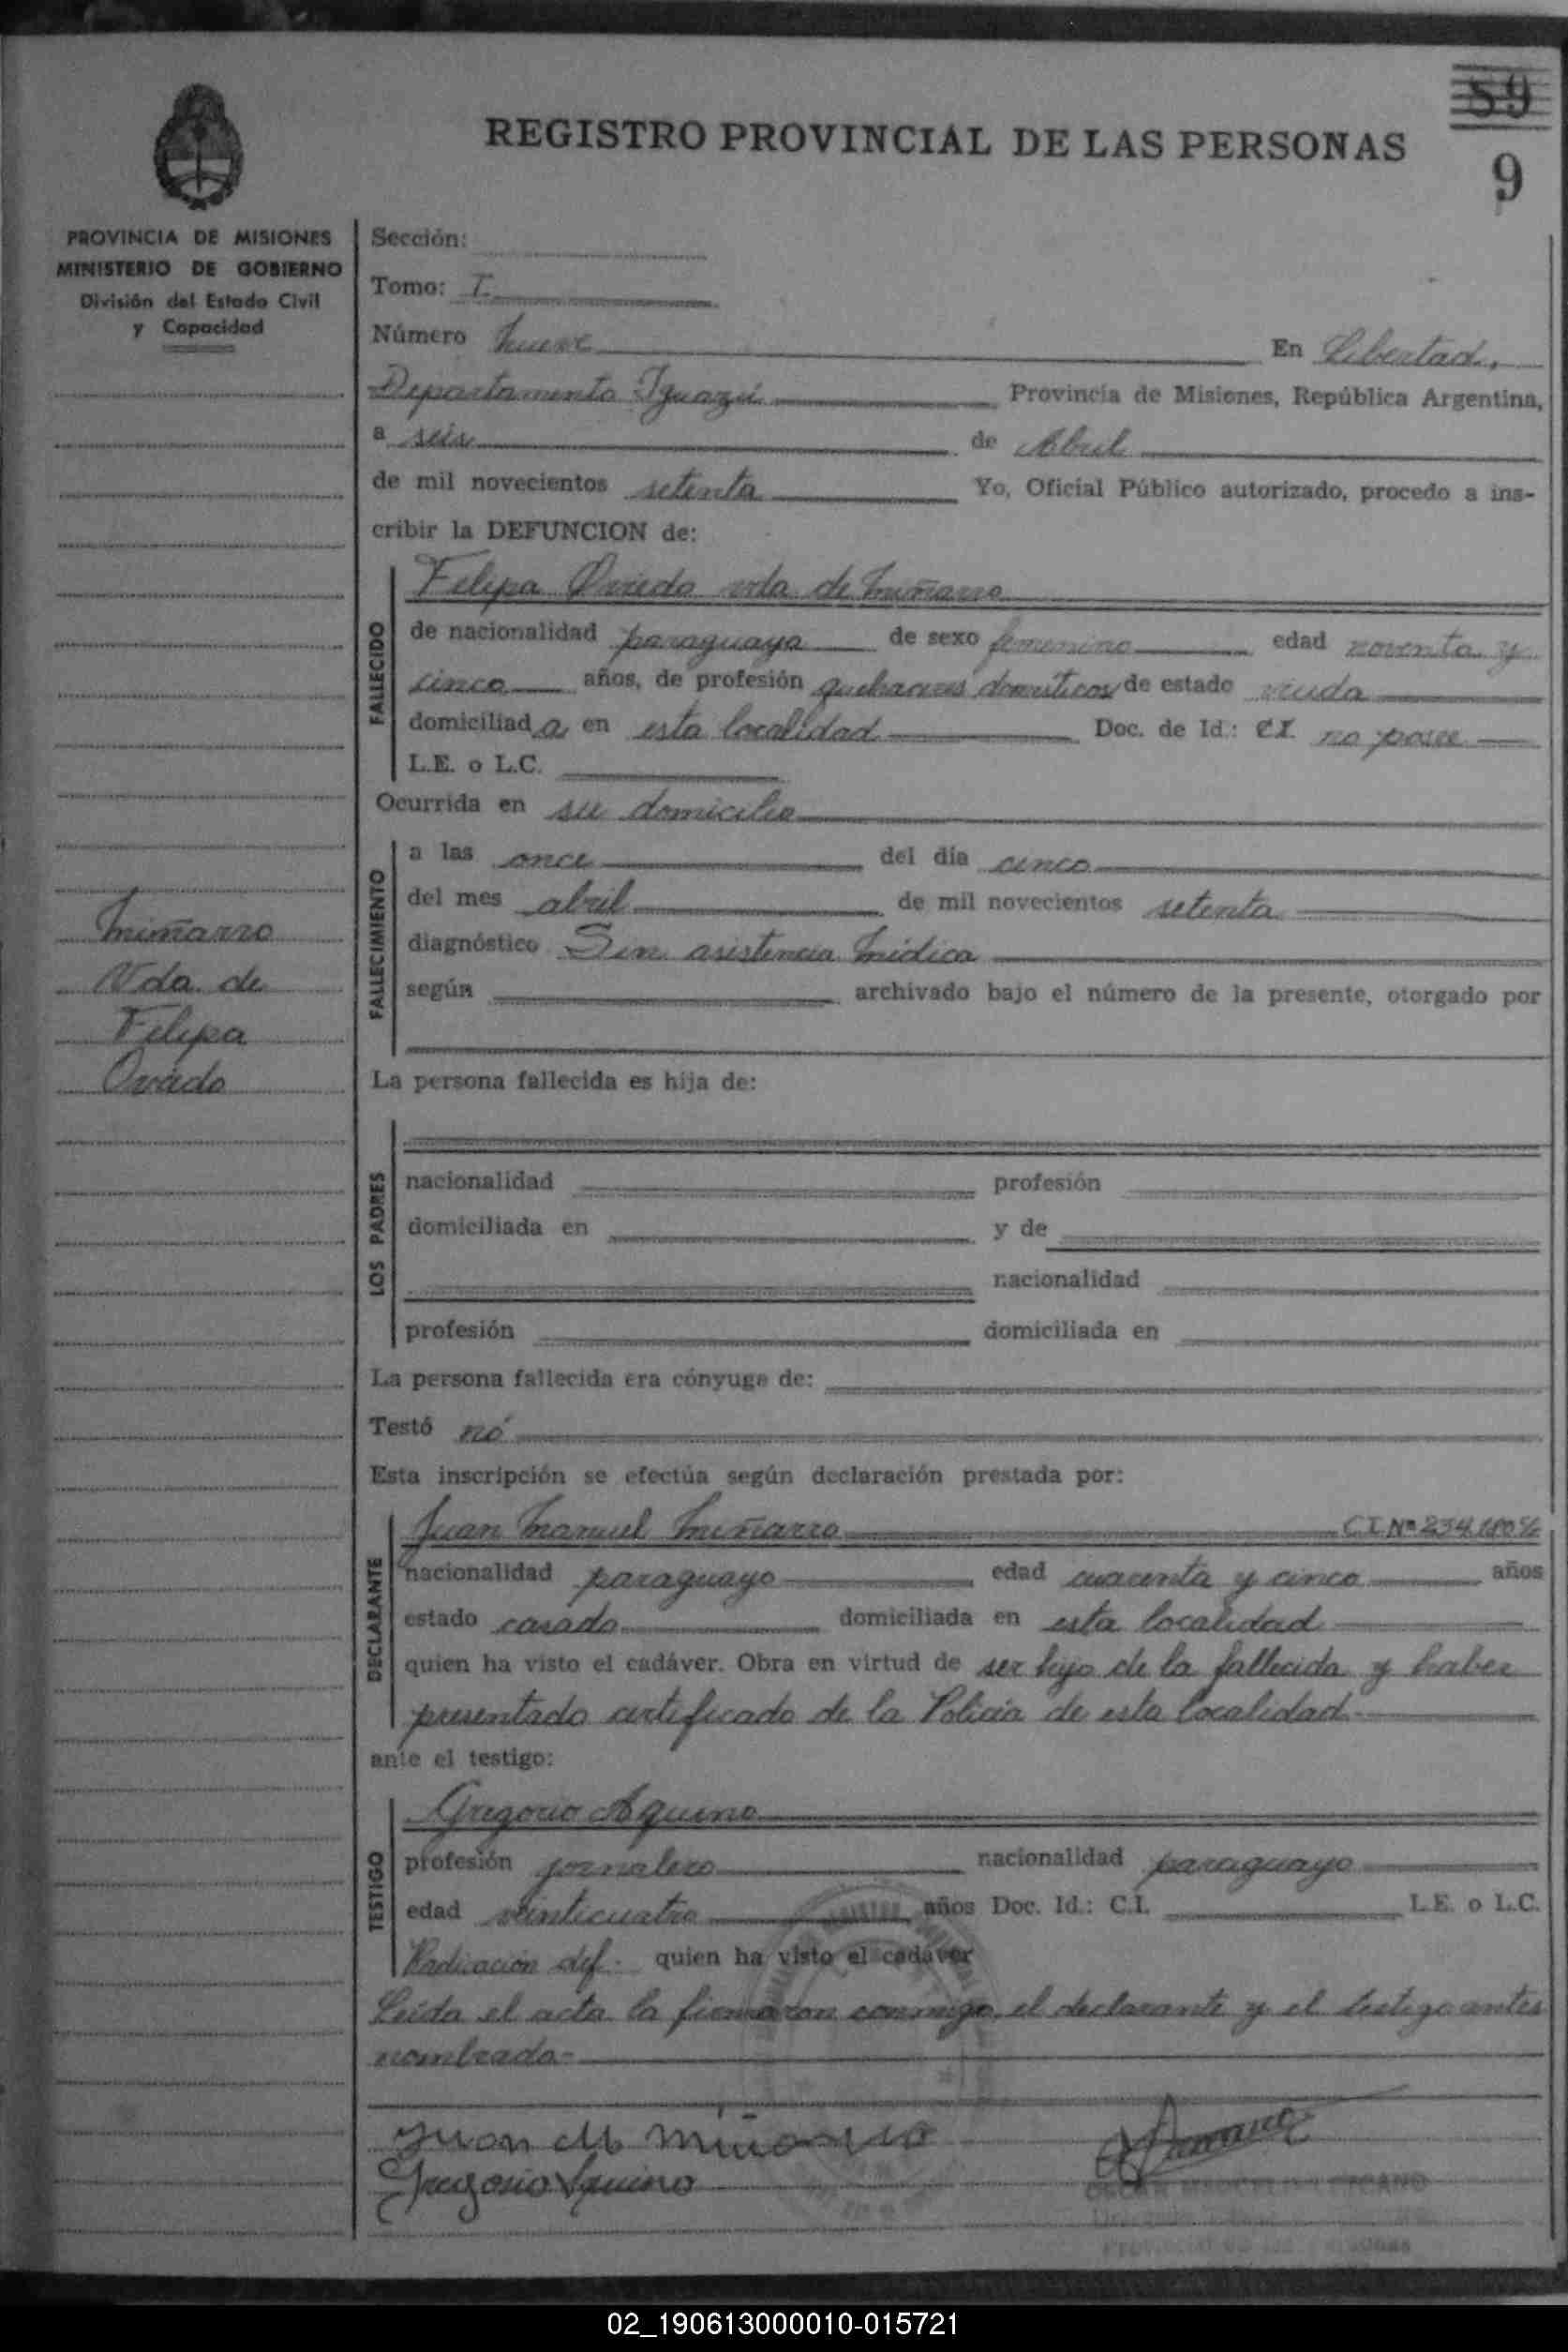 59
REGISTRO PROVINCIAL DE LAS PERSONAS
9
PROVINCIA DE MISIONES
MINISTERIO DE GOBIERNO
División del Estado Civil
y Capacidad
Miñarro
Vda. de
Felipa
Oviedo
Sección:
Tomo: I
Número Nueve En Libertad,
Departamento Iguazú Provincia de Misiones, República Argentina,
a seis de Abril
de mil novecientos setenta Yo, Oficial Público autorizado, procedo a ins-
cribir la DEFUNCION de:
FALLECIDO
Felipa Oviedo vda de Miñarro
de nacionalidad paraguaya de sexo femenino edad noventa y
cinco años, de profesión quehaceres domésticos de estado viuda
domiciliad a en esta localidad Doc. de Id.: C.I. no posee
L.E. o L.C.
Ocurrida en su domicilio
FALLECIMIENTO
a las once del día cinco
del mes abril de mil novecientos setenta
diagnóstico Sin asistencia Médica
según archivado bajo el número de la presente, otorgado por
La persona fallecida es hija de:
LOS PADRES
nacionalidad profesión
domiciliada en y de
nacionalidad
profesión domiciliada en
La persona fallecida era cónyuge de:
Testó nó
Esta inscripción se efectúa según declaración prestada por:
DECLARANTE
Juan Manuel Miñarro C.I. Nº
nacionalidad paraguayo edad cuarenta y cinco años
estado casado domiciliada en esta localidad
quien ha visto el cadáver. Obra en virtud de ser hijo de la fallecida y haber
presentado certificado de la Policía de esta localidad.
ante el testigo:
TESTIGO
Gregorio Aquino
profesión jornalero nacionalidad paraguayo
edad veinticuatro años Doc. Id.: C.I. L.E. o L.C.
Radicación def. quien ha visto el cadáver
Leída el acta la firmaron conmigo, el declarante y el testigo antes
nombrado-
Juan M Miñarro
Gregorio Aquino
02_190613000010-015721